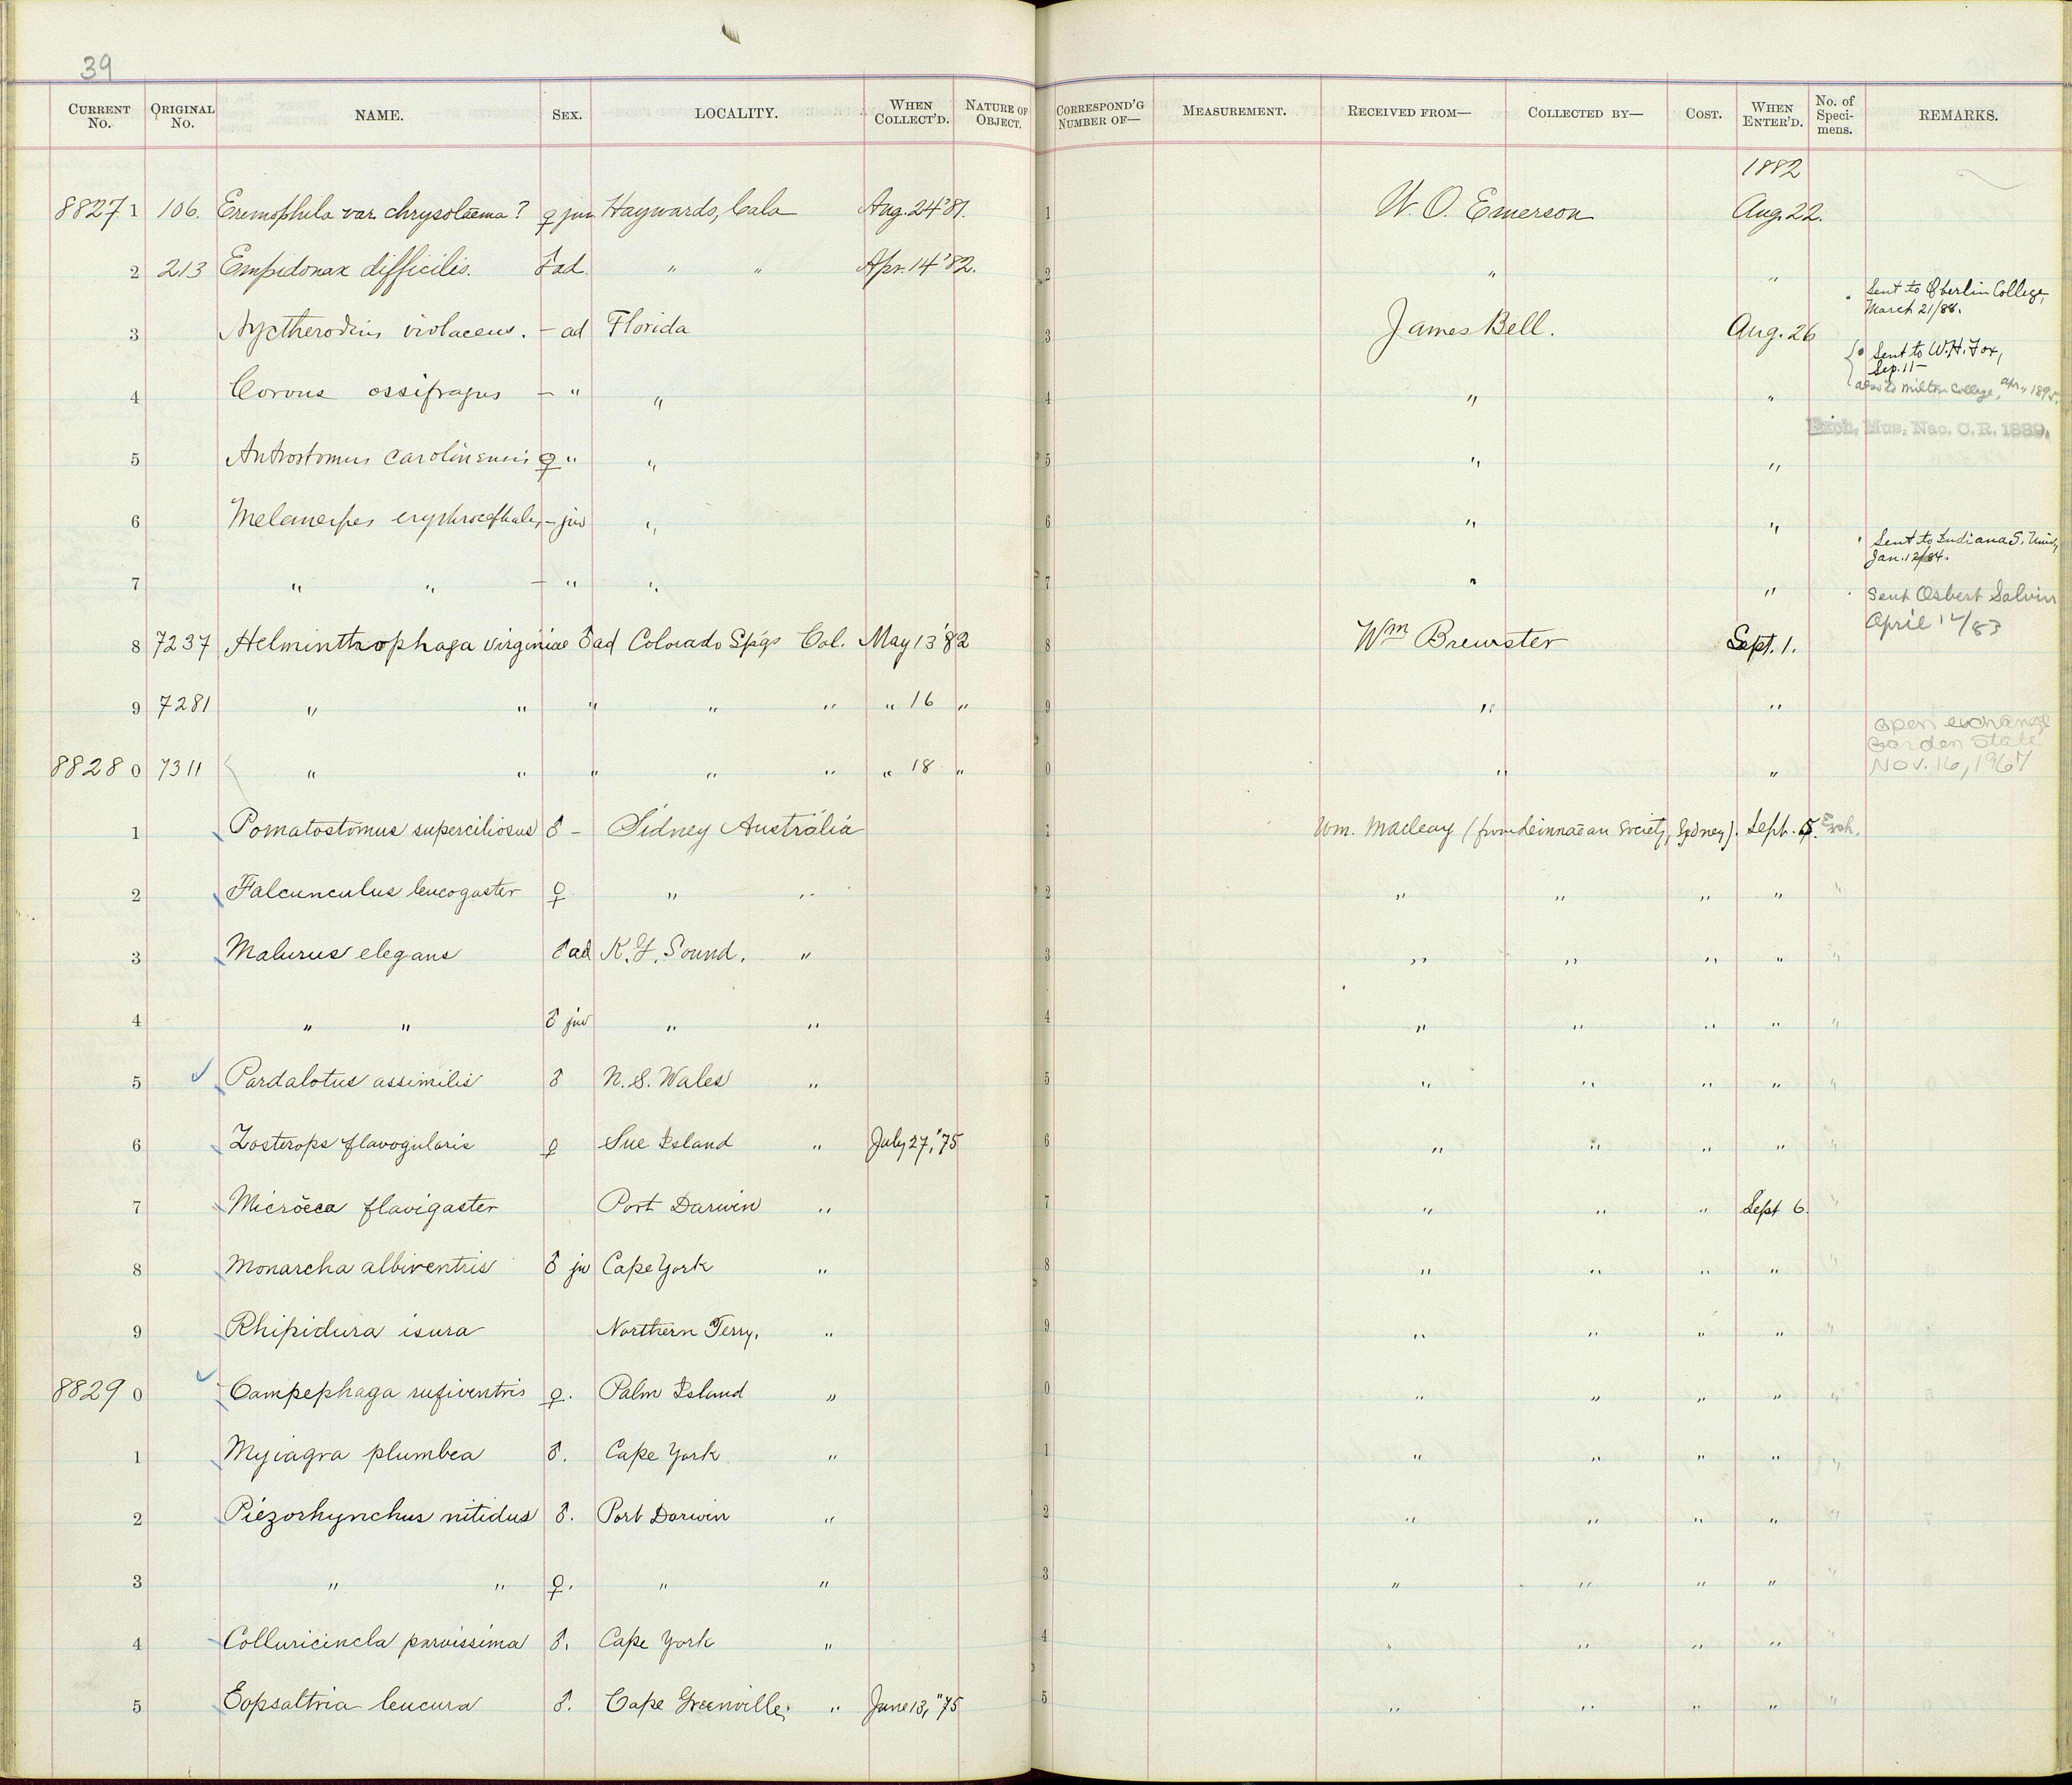 39
CURRENT No. ORIGINAL No. NAME. SEX. LOCALITY. WHEN COLLECT'D. NATURE OF OBJECT. CORRESPOND'G NUMBER OF— MEASUREMENT. RECEIVED FROM— COLLECTED BY— COST. WHEN ENTER'D. No. of Specimens. REMARKS.
1882
88271 106. Eremophila var. chrysolaema? ♀ juv Haywards, Cala Aug. 24 '81. 1 W. O. Emerson Aug. 22.
2 213 Empidonax difficilis. ♂ ad. " " Apr. 14 '82. 2 " "
Sent to Oberlin College, March 21/88.
3 Nyctherodius violaceus. – ad Florida 3 James Bell. Aug. 26
Sent to W. H. Fox, Sep. 11–
also to Milton College, Apr., 1895.
4 Corvus ossifragus – " " 4 " "
Exch. Mus. Nac. C. R. 1889.
5 Antrostomus carolinensis ♀ " " 5 " "
6 Melanerpes erythrocephalus – juv " 6 " "
Sent to Indiana S. Univ., Jan. 12/84.
7 " " – " " 7 " "
Sent Osbert Salvin April 12/83
8 7237 Helminthophaga virginiae ♂ ad Colorado Sp'gs Col. May 13 '82 8 Wm Brewster Sept. 1.
9 7281 " " " " " " 16 " 9 " "
open exchange Garden State Nov. 16, 1967
88280 7311 " " " " " " 18 " 0 " "
1 Pomatostomus superciliosus ♂ – Sidney Australia 1 Wm. Macleay (from Leinnaean Society, Sydney). Sept. 5. Exch.
2 Falcunculus leucogaster ♀ " " 2 " " " " "
3 Malurus elegans ♂ ad K. G. Sound, " 3 " " " " "
4 " " ♂ juv " " 4 " " " " "
5 Pardalotus assimilis ♂ N. S. Wales " 5 " " " " "
6 Zosterops flavogularis ♀ Sue Island " July 27, "75 6 " " " " "
7 Micrœca flavigaster Port Darwin " 7 " " " Sept 6. "
8 Monarcha albiventris ♂ juv Cape York " 8 " " " " "
9 Rhipidura isura Northern Terry. " 9 " " " " "
88290 Campephaga rufiventris ♀. Palm Island " 0 " " " " "
1 Myiagra plumbea ♂. Cape York " 1 " " " " "
2 Piezorhynchus nitidus ♂. Port Darwin " 2 " " " " "
3 " " ♀. " " 3 " " " " "
4 Colluricincla parvissima ♂. Cape York " 4 " " " " "
5 Eopsaltria leucura ♂. Cape Grenville. " June 13, "75 5 " " " " "